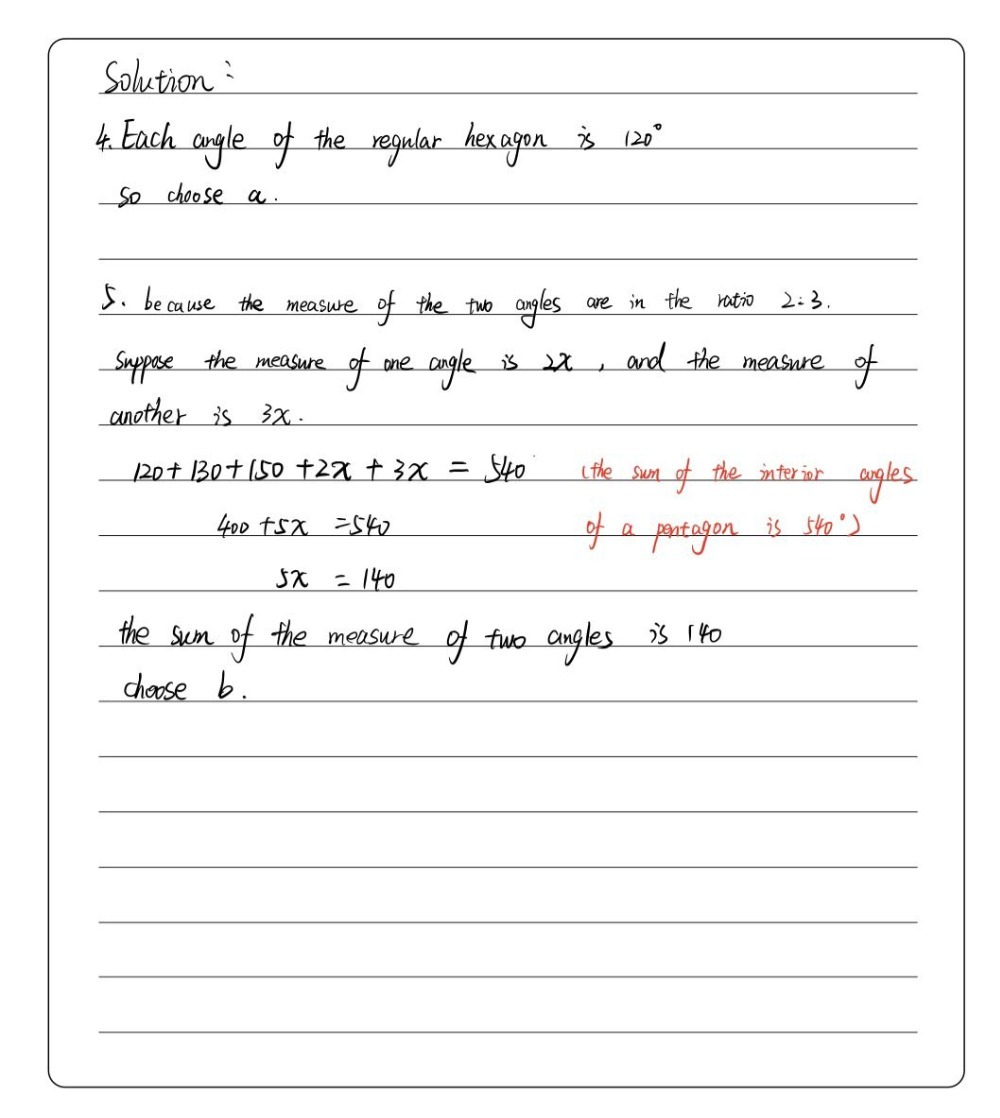 Solution:
4. Each angle of the regular hexagon is 120°
so choose a.
5. because the measure of the two angles are in the ratio 2:3.
Suppose the measure of one angle is 2x, and the measure of
another is 3x.
120+130+150+2x+3x = 540 (the sum of the interior angles
400+5x =540 of a pentagon is 540°)
5x = 140
the sum of the measure of two angles is 140
choose b.